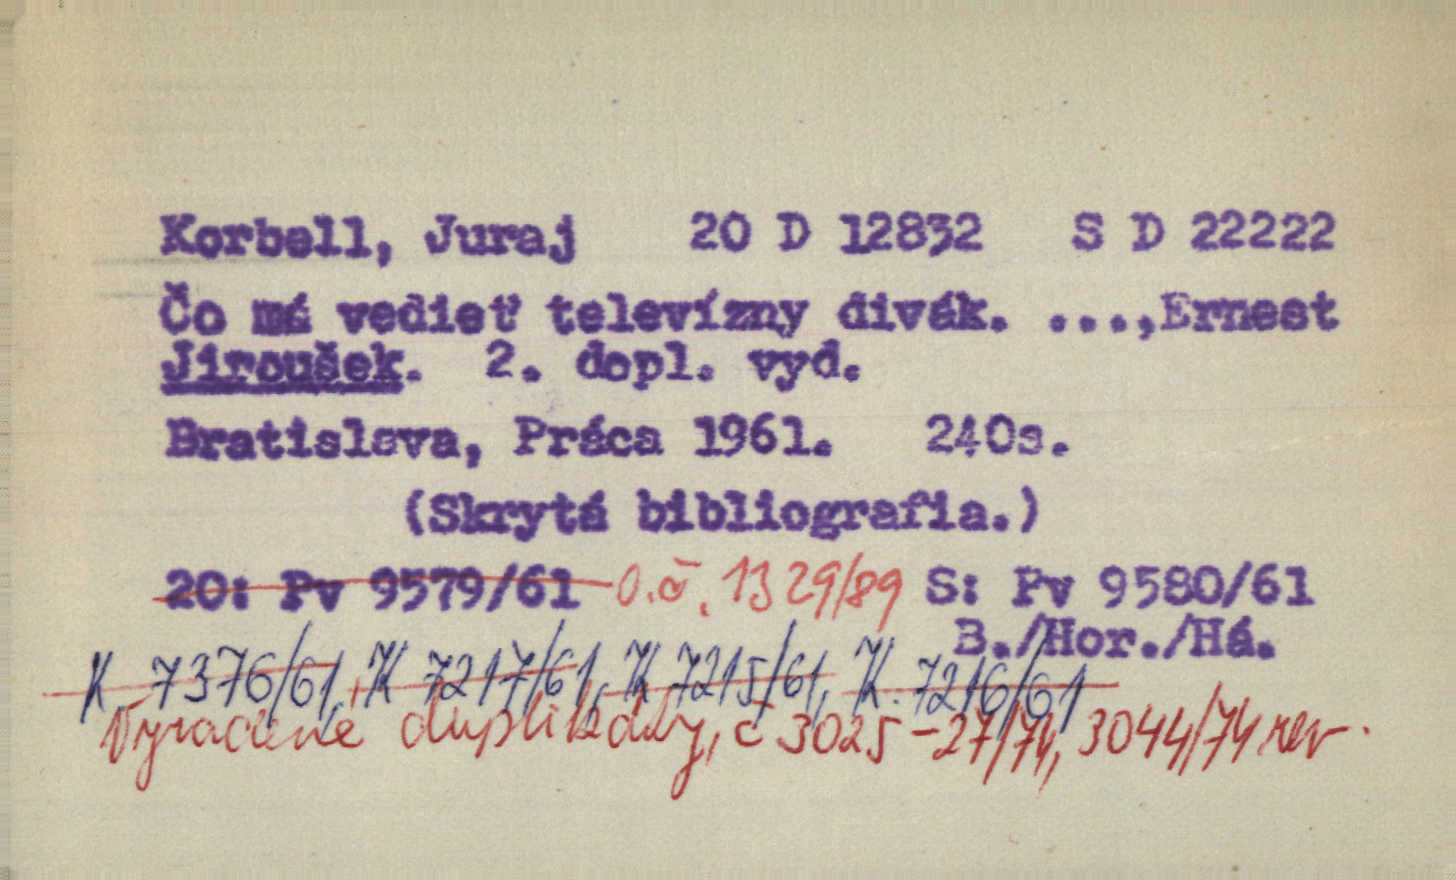 Korbell, Juraj 20 D 12832 S D 22222
Čo má vedieť televízny divák. ...,Ernest
Jiroušek. 2. dopl. vyd.
Bratislava, Práca 1961. 240s.
(Skrytá bibliografia.)
20: Pv 9579/61 O.č. 1329/89 S: Pv 9580/61
B./Hor./Há.
K 7376/61, K 7217/61, K 7215/61, K. 7216/61
Vyradené duplikáty, č 3025-27/74, 3044/74 rev.